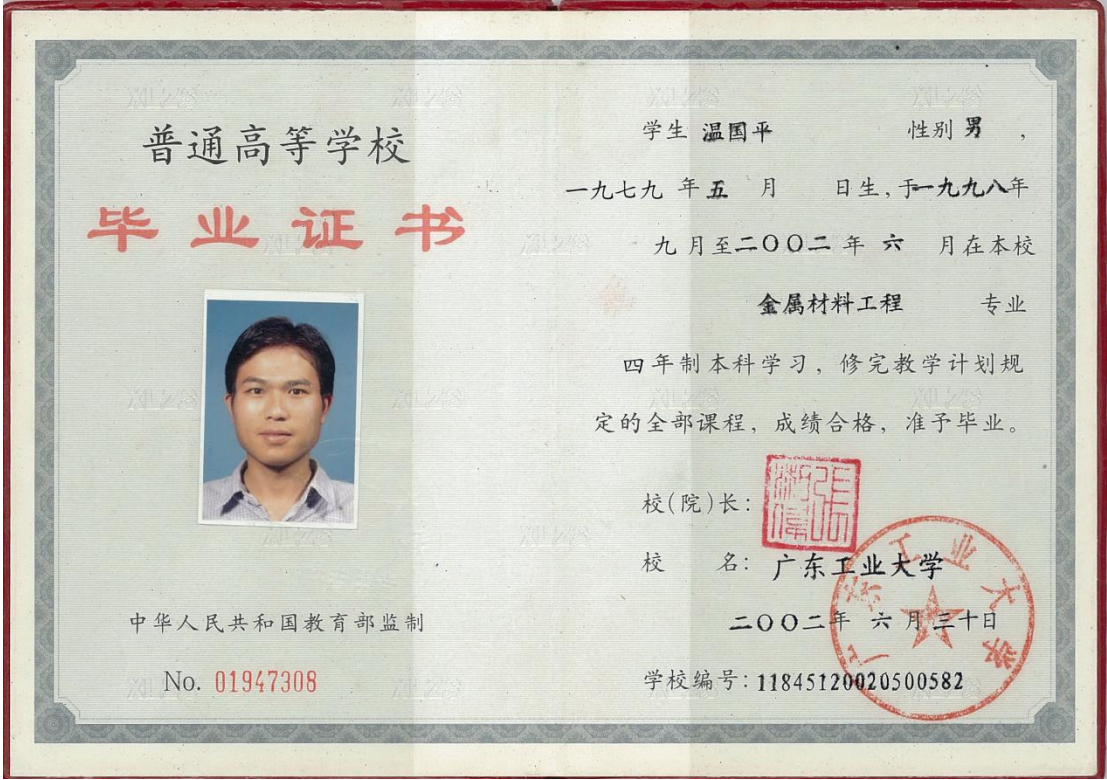 普通高等学校
毕业证书
中华人民共和国教育部监制
No. 01947308
学生 温国平 性别 男 ，
一九七九 年 五 月 日生，于一九九八年
九 月至二〇〇二 年 六 月在本校
金属材料工程 专业
四年制本科学习，修完教学计划规
定的全部课程，成绩合格，准予毕业。
校(院)长：
校 名：广东工业大学
二〇〇二年 六 月 三十日
学校编号：11845120020500582
广东工业大学